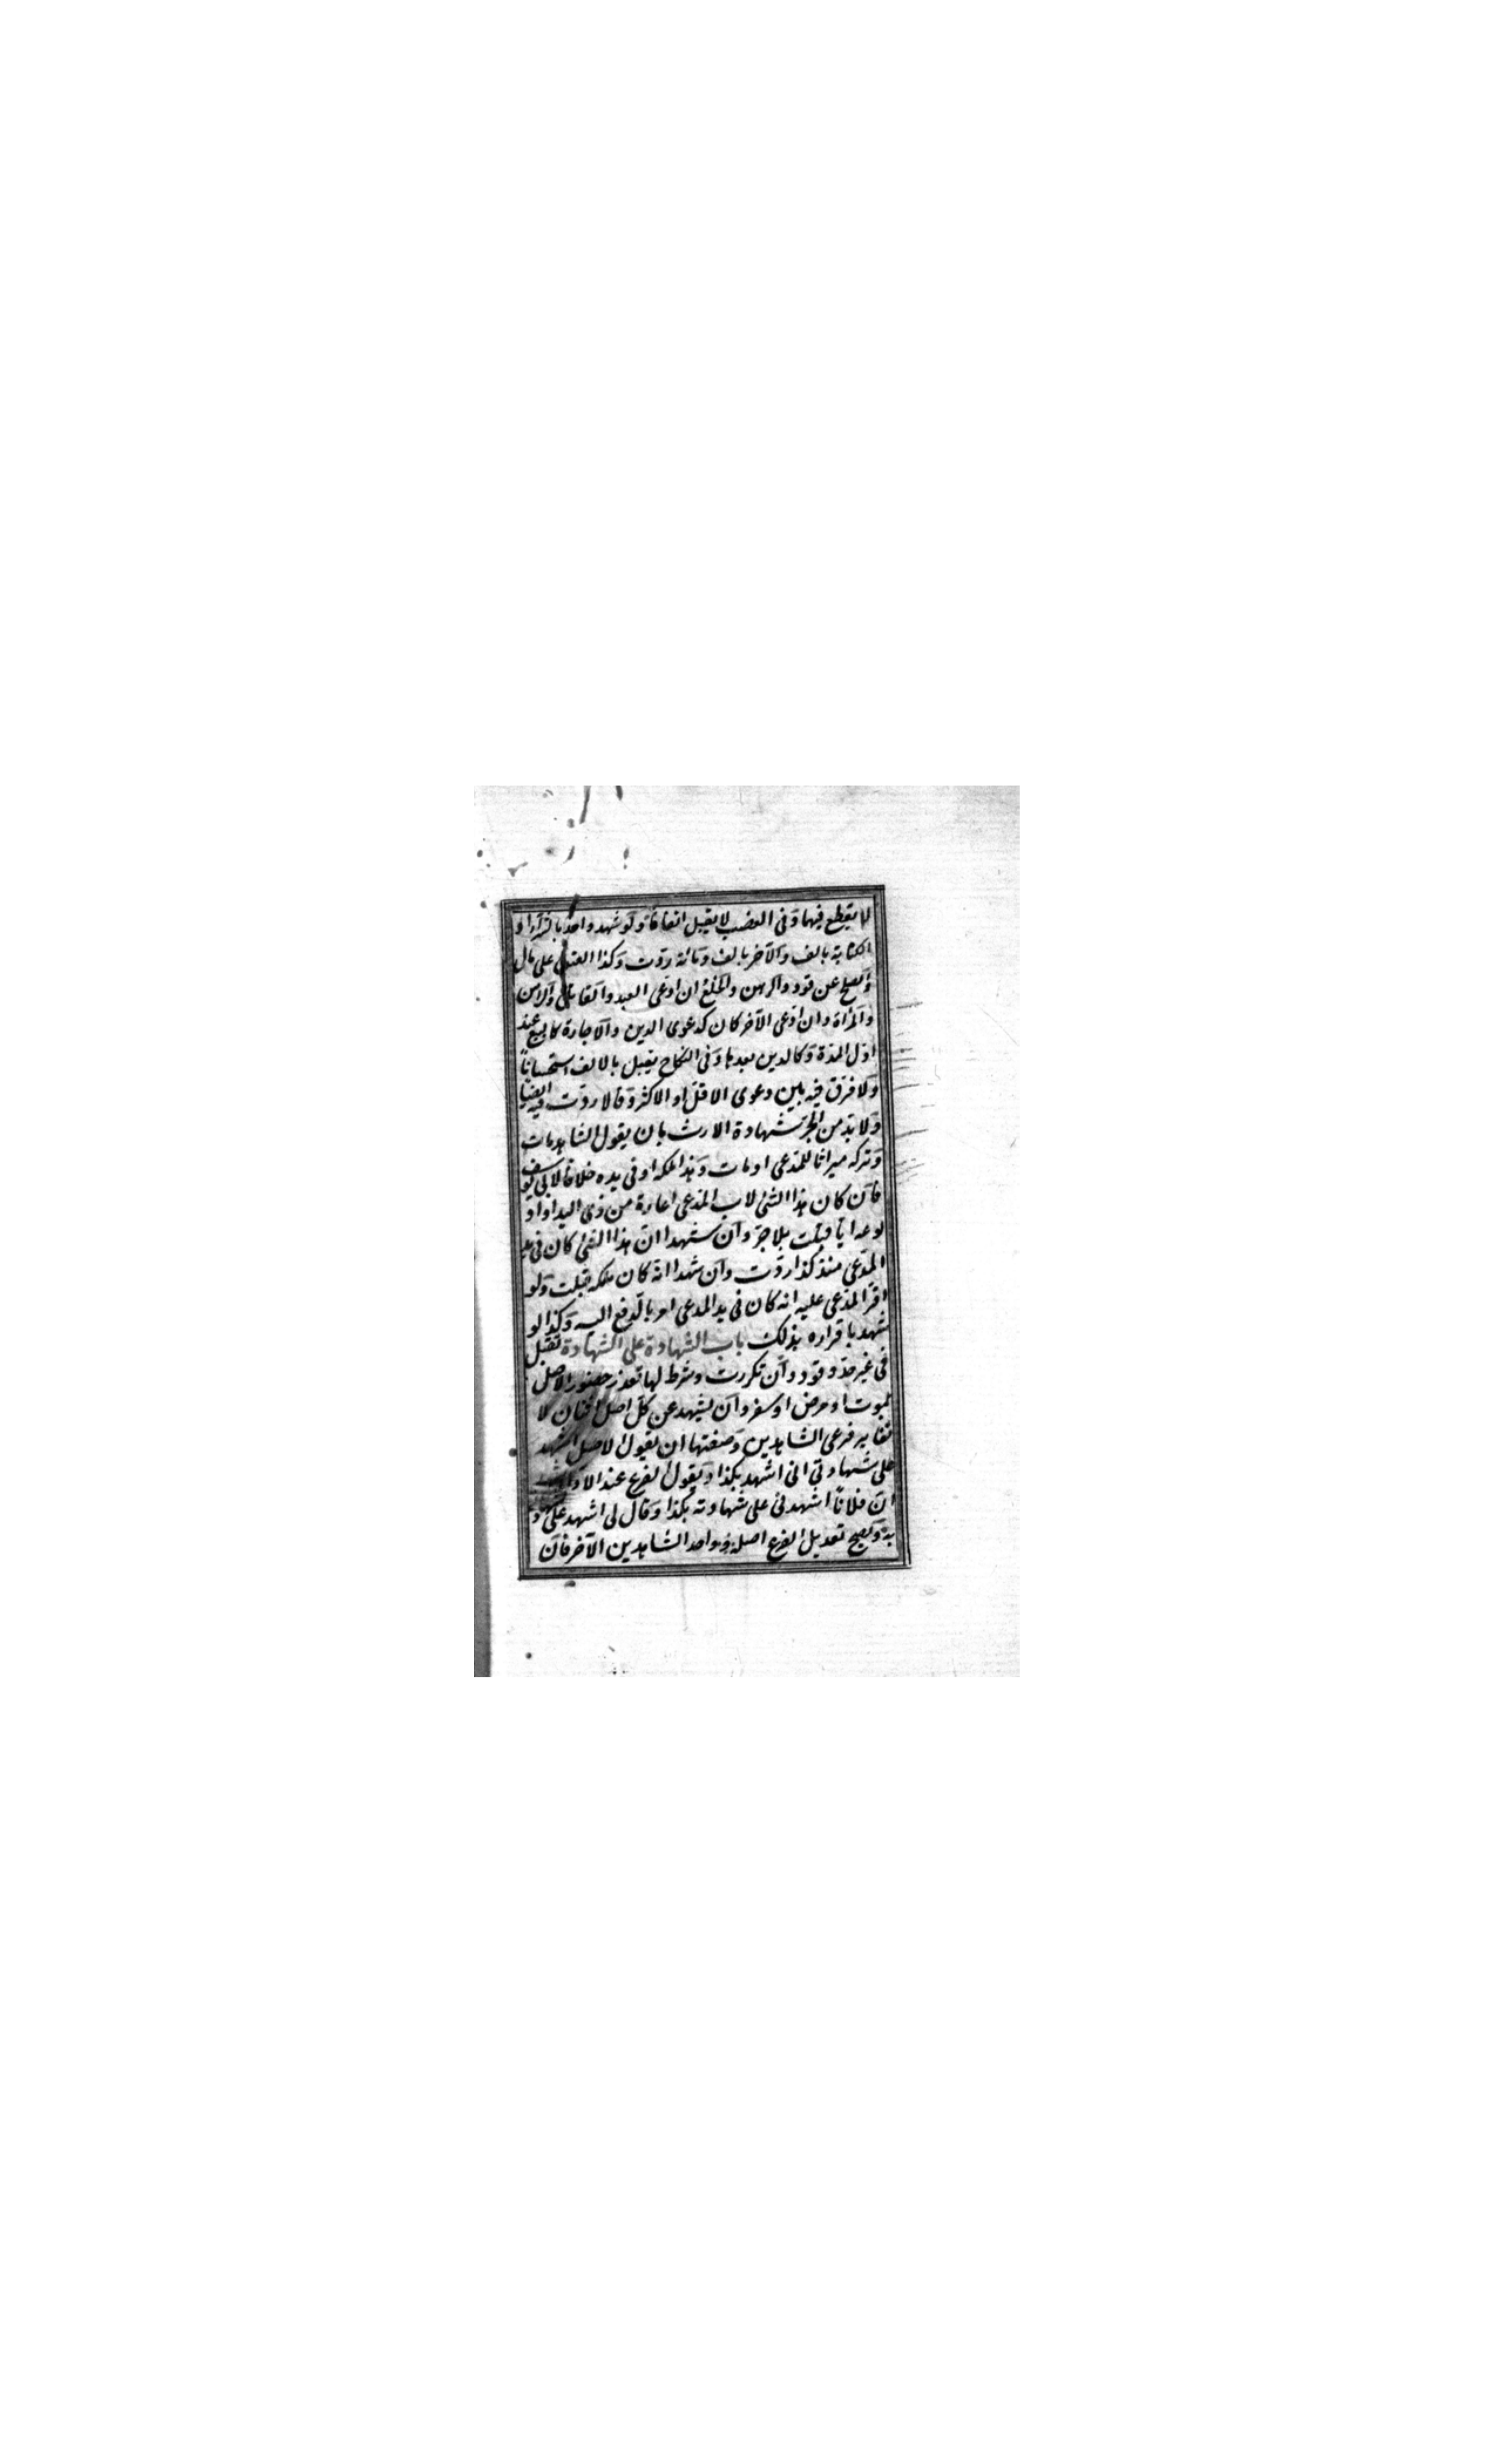 لا يقطع فيها وفى الغصب لا يقبل اتفاقا ولو شهد واحد بالشراء او
الكتابة بالف والآخر بالف ومائة ردت وكذا العتق على مال
والصلح عن قود والرهن والخلع ان ادعى العبد والقاتل والراهن
والمرأة وان ادعى الآخر كان كدعوى الدين والاجارة كالبيع عند
اول المدة وكالدين بعدها وفى النكاح يقبل بالالف استحسانا
ولا فرق فيه بين دعوى الاقل او الاكثر وقالا ردت فيه ايضا
ولا بد من الجر شهادة الارث بان يقول الشاهد مات
وتركه ميراثا للمدعى او مات وهذا ملكه او فى يده خلافا لابى يوسف
فان كان هذا الشئ لاب المدعى اعاره من ذى اليد او اود
لوعه اياه قبلت بلا جر وان شهدا ان هذا الشئ كان فى يد
المدعى منذ كذا ردت وان شهدا انه كان ملكه قبلت ولو
اقر المدعى عليه انه كان فى يد المدعى امر بالدفع اليه وكذا لو
شهد باقراره بذلك باب الشهادة على الشهادة تقبل
فى غير حد وقود وان تكررت وشرط لها تعذر حضور الاصل
بموت او مرض او سفر وان يشهد عن كل اصل اثنان لا
تغاير فرعى الشاهدين وصفتها ان يقول الاصل اشهد
على شهادتى انى اشهد بكذا ويقول الفرع عند الاداء اشهد
ان فلانا اشهدنى على شهادته بكذا وقال لى اشهد على
به ويصح تعديل الفرع اصله واحد الشاهدين الآخر فان